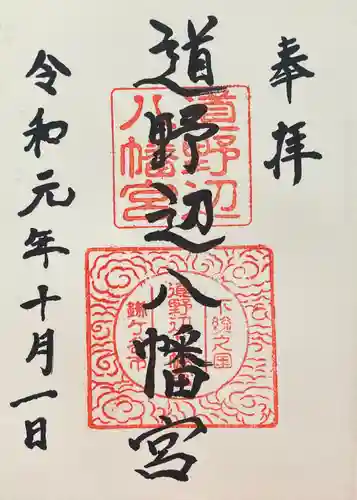 奉拝
道野辺八幡宮
令和元年十月一日
道野辺
八幡宮
下総之国
鎌ケ谷市